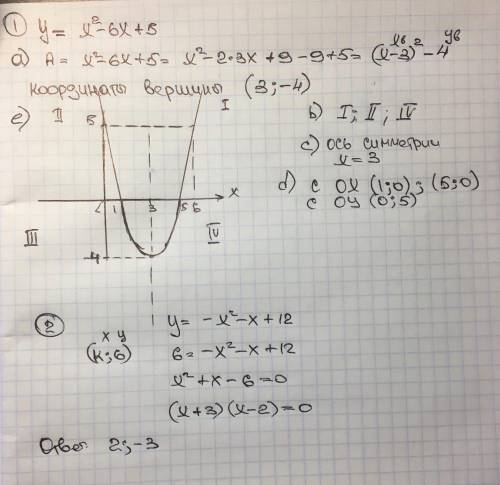 ① y = x²-6x+5
a) A = x²-6x+5 = x²-2·3x+9-9+5 = (x-3)²-4
xв yв
координаты вершины (3;-4)
e) II I
5
1 3 5 6 x
-4
III IV
b) I; II; IV
c) ось симметрии
x=3
d) с OX (1;0); (5;0)
с OY (0;5)
② y = -x²-x+12
x y
(к;6) 6 = -x²-x+12
x²+x-6=0
(x+3)(x-2)=0
Ответ 2;-3